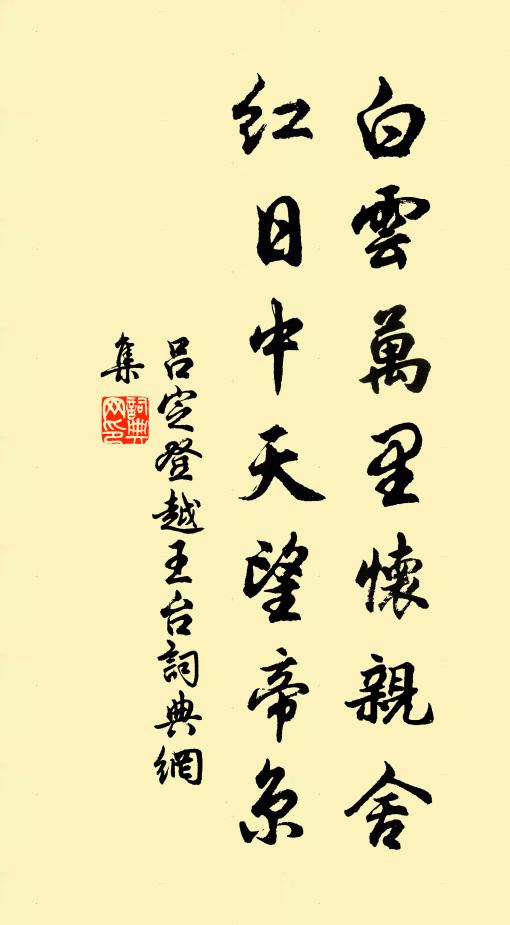 白雲萬里懷親舍
紅日中天望帝京
呂定登越王台詞典網
集
詞典
网印